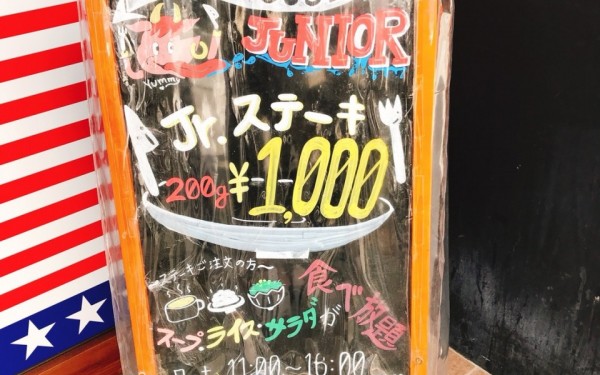 JUNIOR
Yummy
Jr.ステーキ
200g ¥1,000
〜ステーキご注文の方〜
スープ・ライス・サラダが
食べ放題
11:00〜16:00